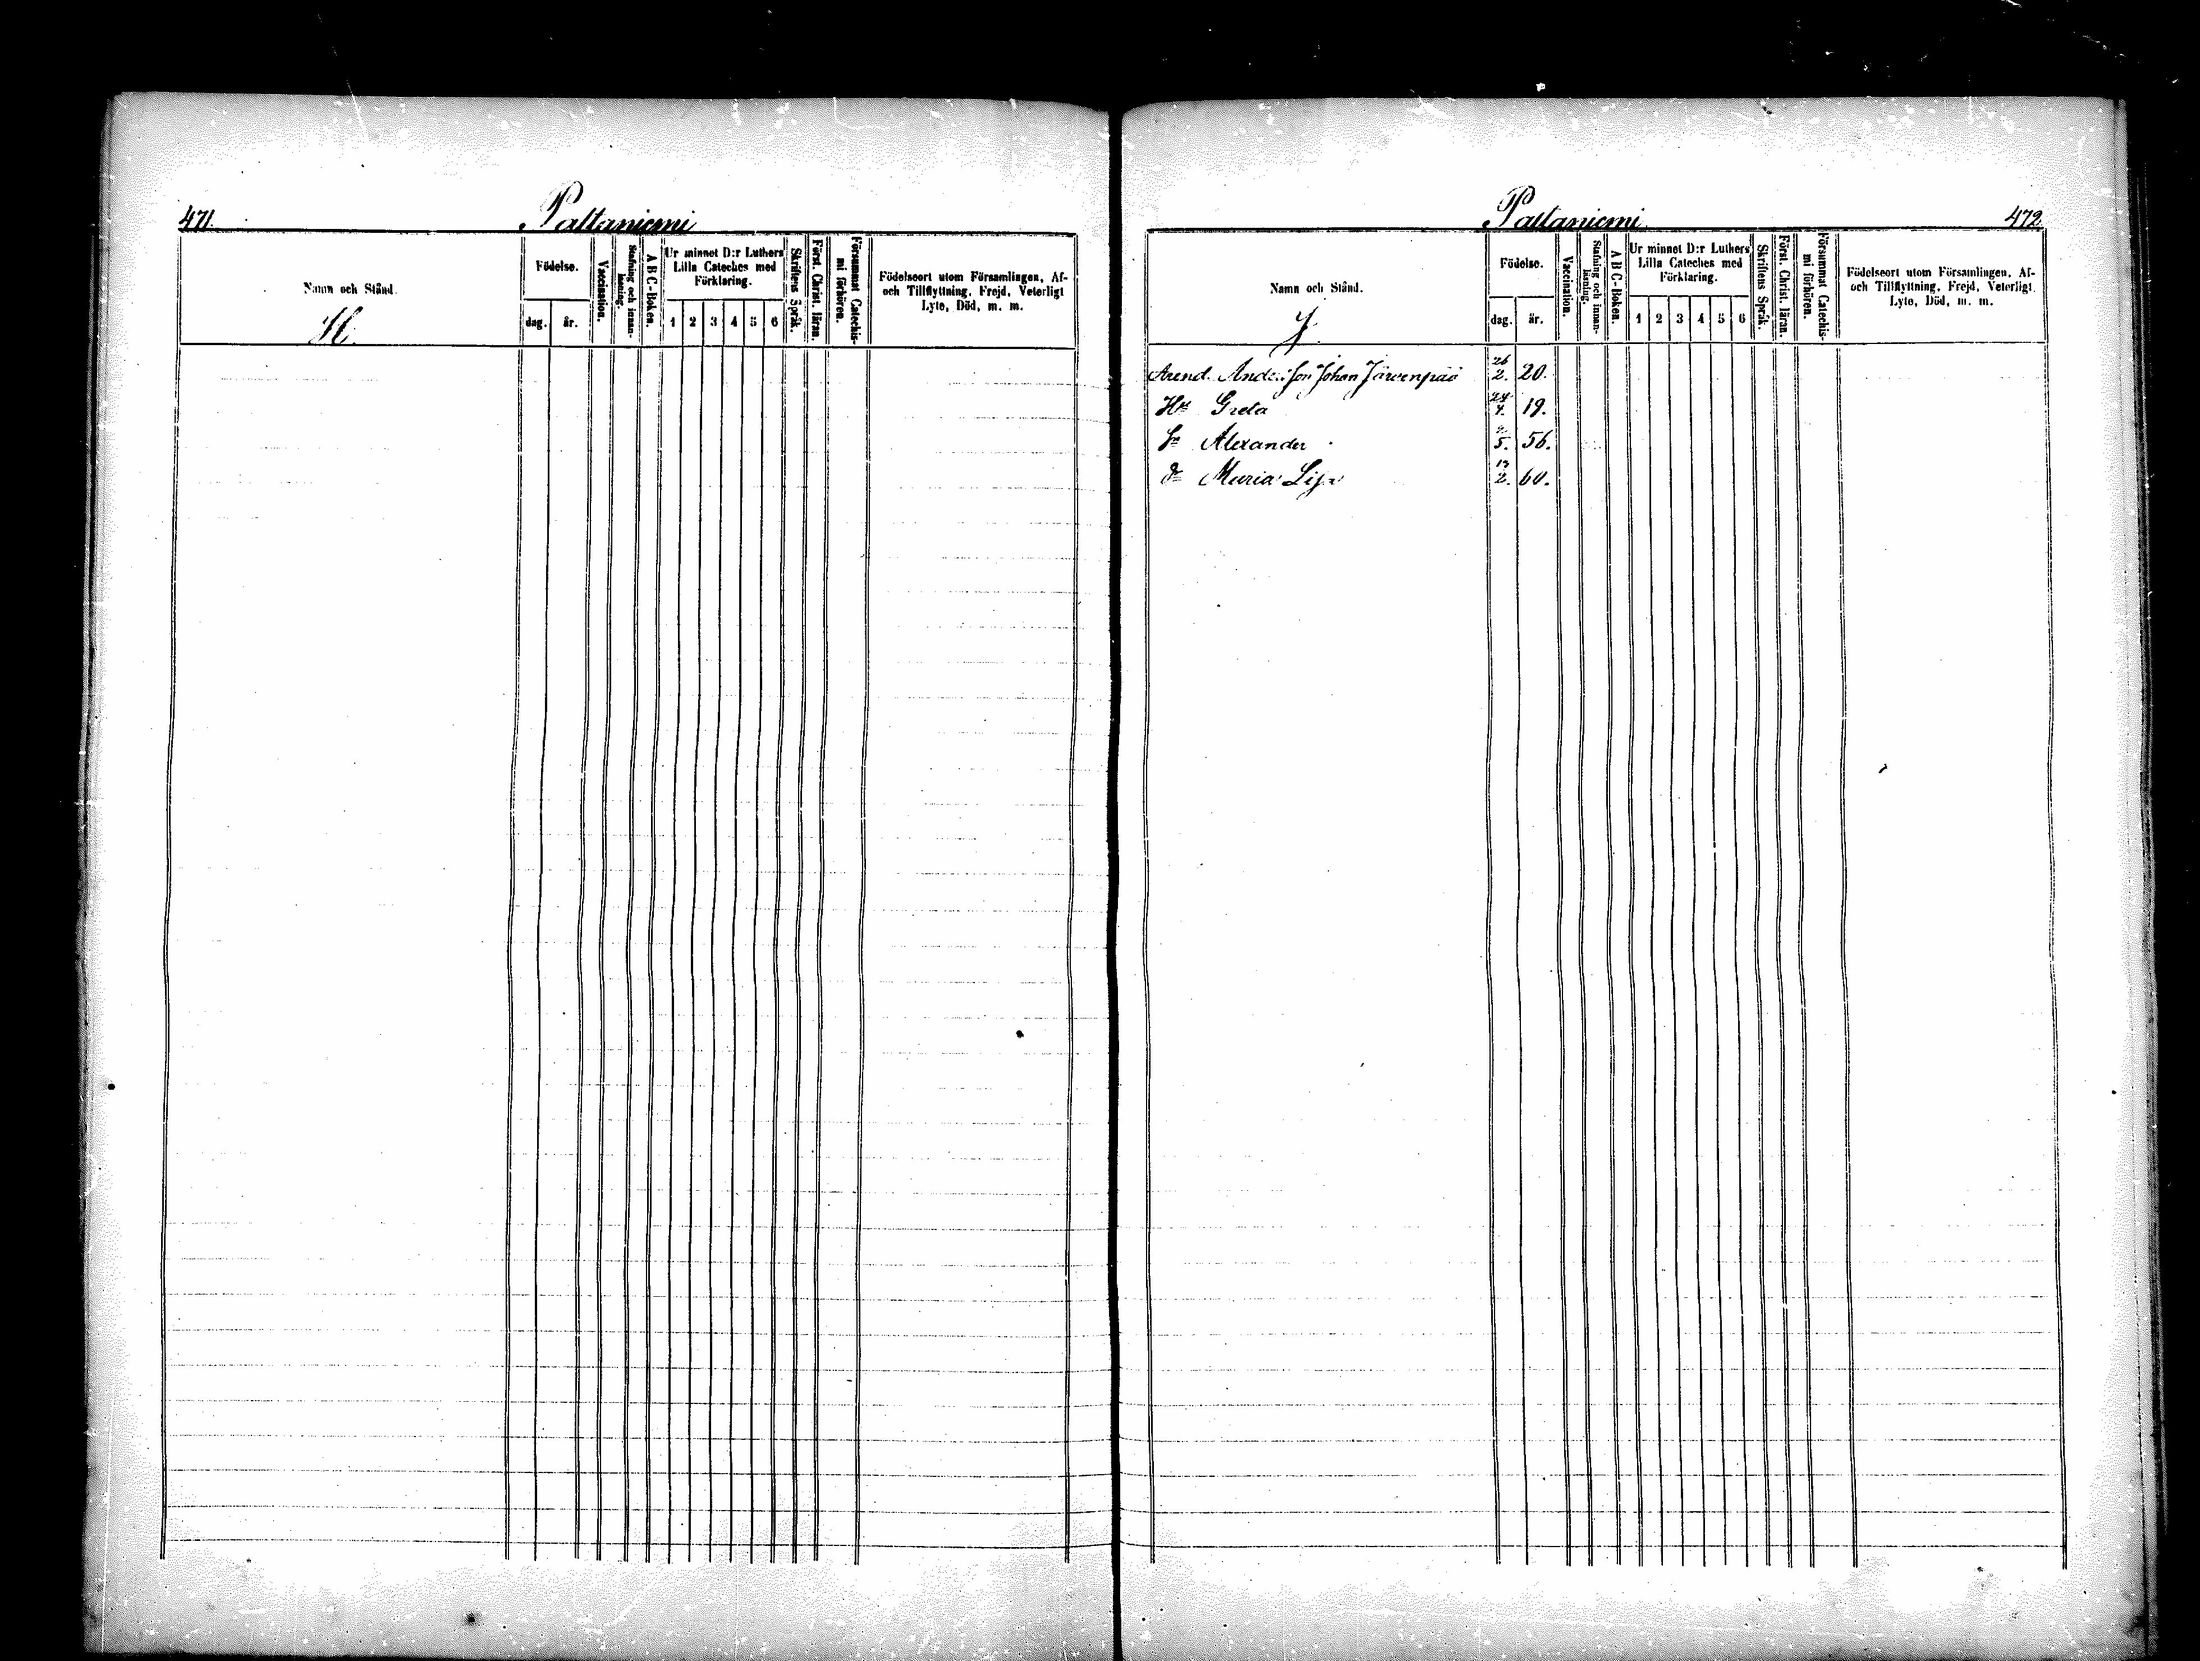 471.
Paltaniemi
Namn och Stånd.
H.
Födelse.
dag.
år.
Vaccination.
Stafning och innan-
läsning.
A B C-Boken.
Ur minnet D:r Luthers
Lilla Cateches med
Förklaring.
1 2 3 4 5 6
Skriftens Språk.
Först. Christ. läran.
Försummat Catechis-
mi förhören.
Födelseort utom Församlingen, Af-
och Tillflyttning, Frejd, Veterligt
Lyte, Död, m. m.
Paltaniemi
472.
Namn och Stånd.
J.
Födelse.
dag.
år.
Vaccination.
Stafning och innan-
läsning.
A B C-Boken.
Ur minnet D:r Luthers
Lilla Cateches med
Förklaring.
1 2 3 4 5 6
Skriftens Språk.
Först. Christ. läran.
Försummat Catechis-
mi förhören.
Födelseort utom Församlingen, Af-
och Tillflyttning, Frejd, Veterligt
Lyte, Död, m. m.
Arend. Johan Järvenpää 26 2. 20.
Hu Greta 24 19.
Sn Alexander 5. 56.
Dr Maria Lisa 13 2. 60.